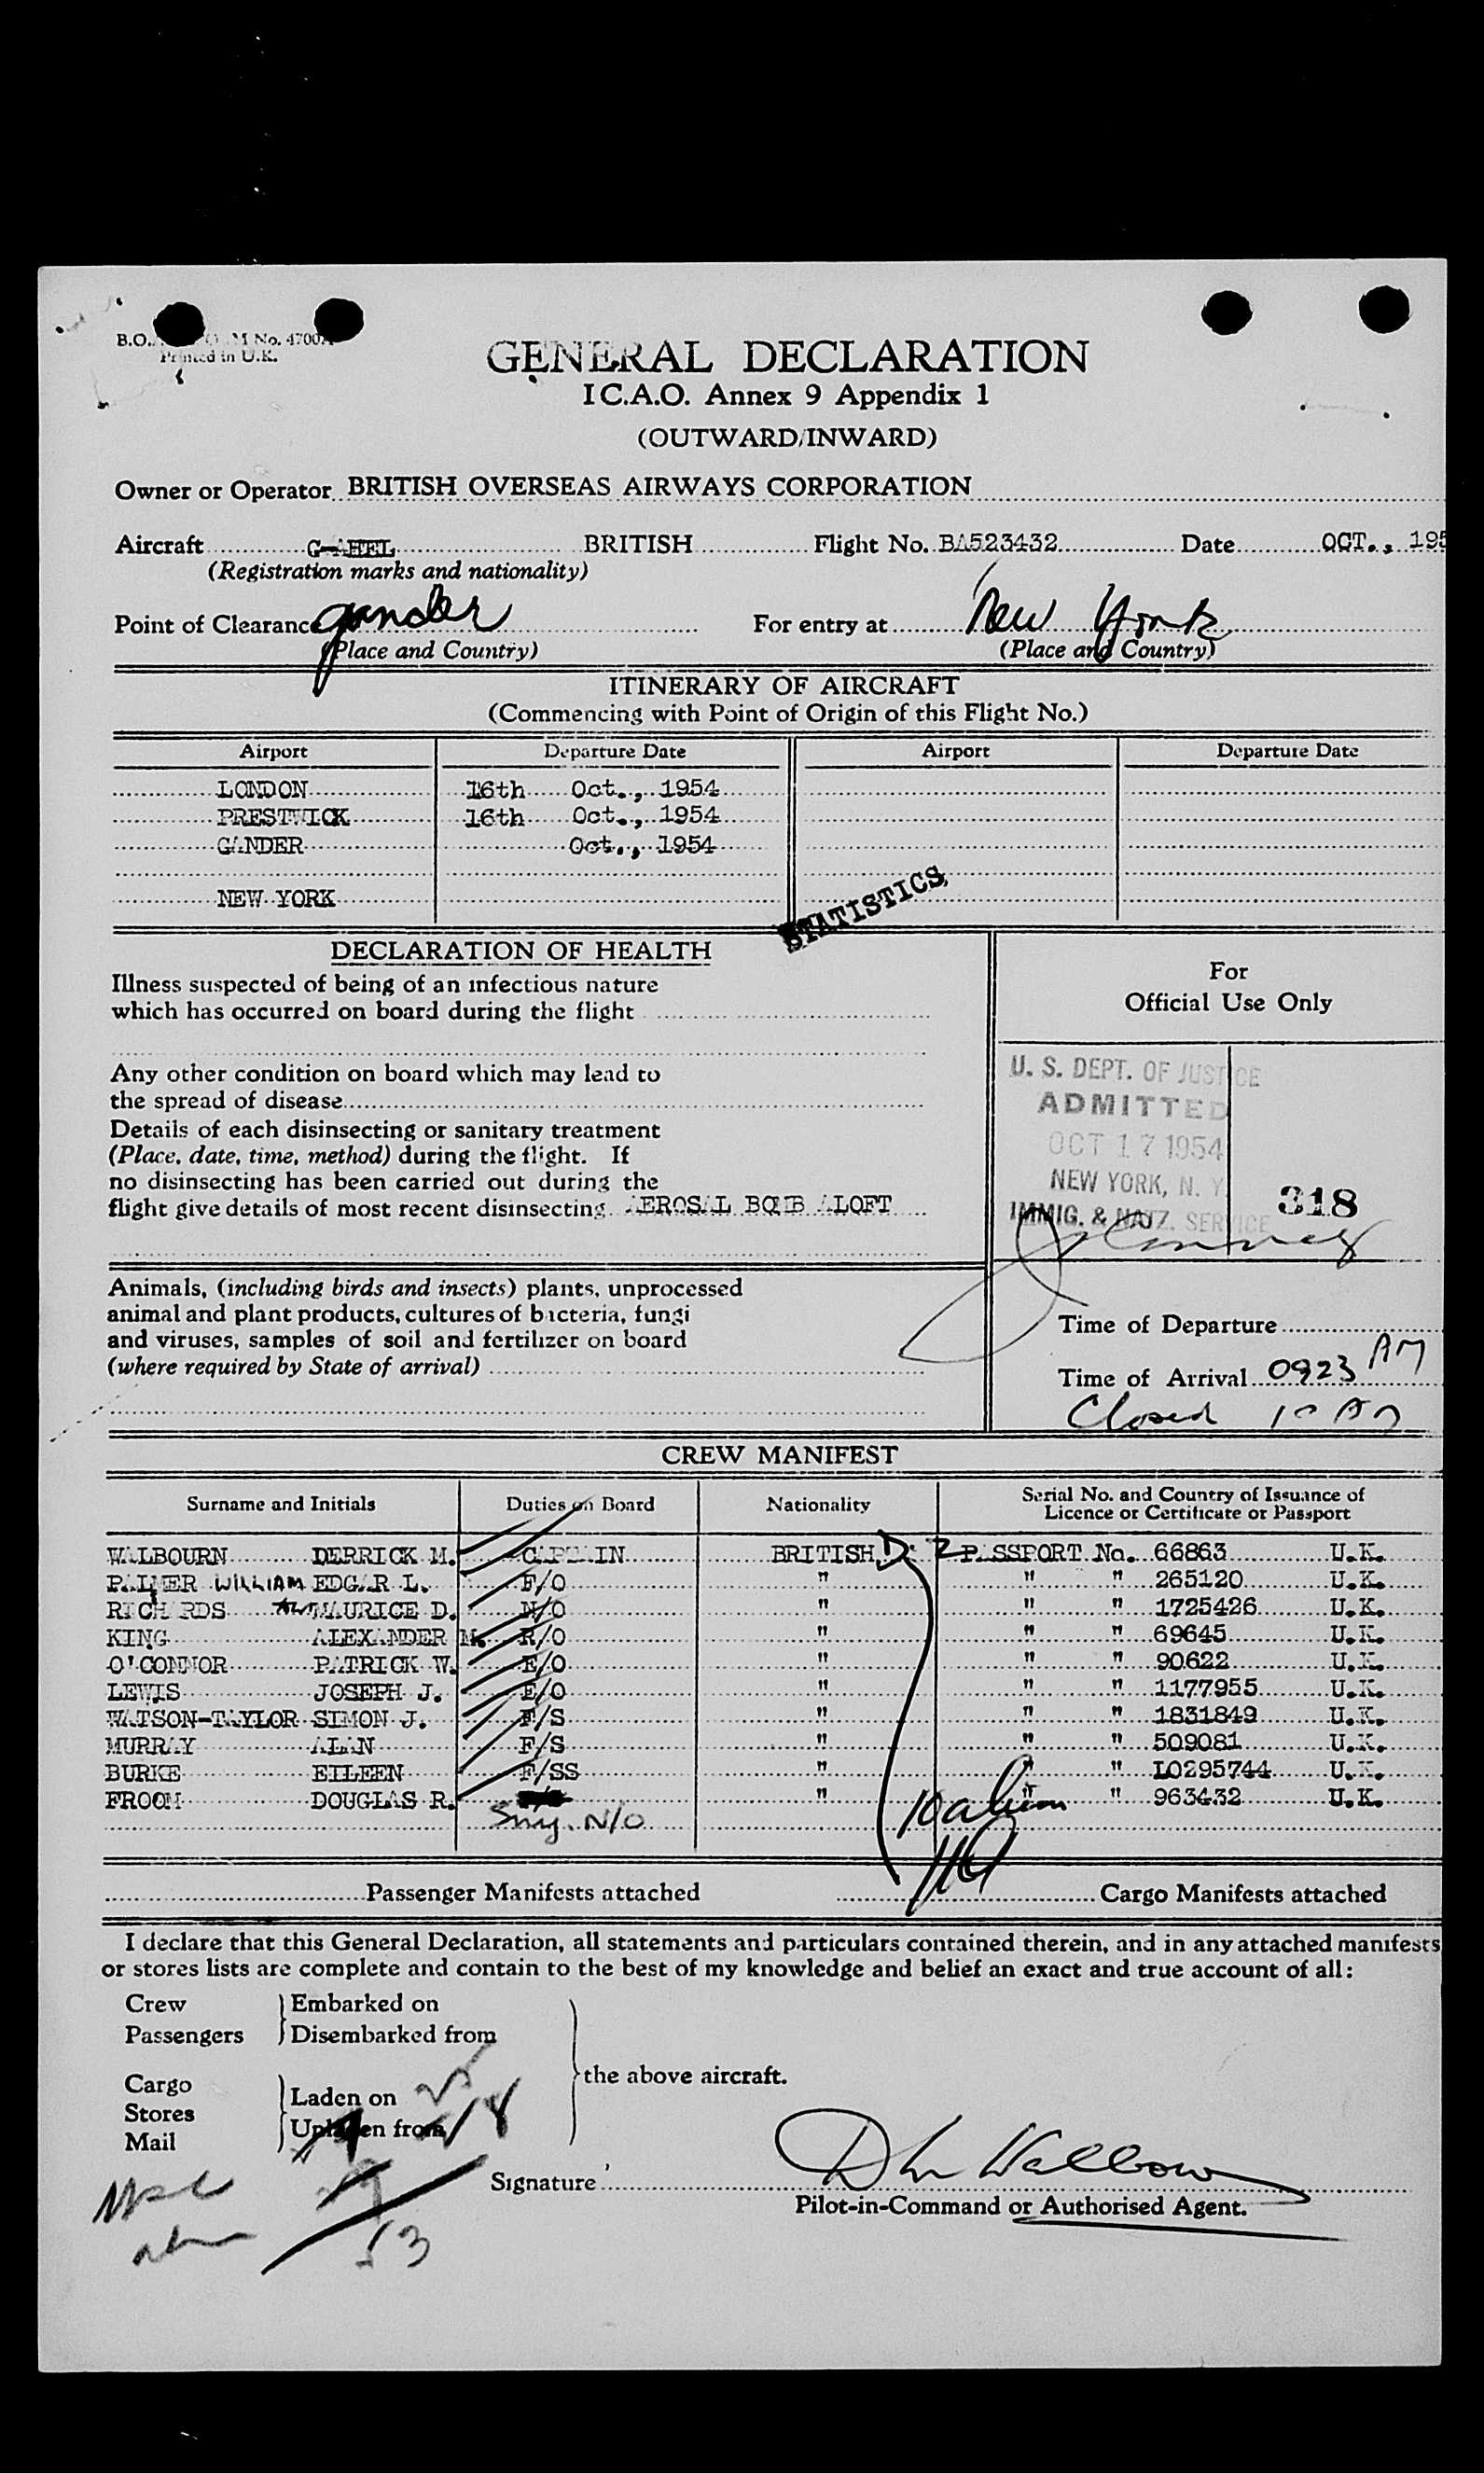 GENERAL DECLARATION
I C.A.O. Annex 9 Appendix 1
(OUTWARD/INWARD)
B.O. M No. 4700
Printed in U.K.
Owner or Operator BRITISH OVERSEAS AIRWAYS CORPORATION
Aircraft G-AHEL BRITISH Flight No. BA523432 Date OCT., 195
(Registration marks and nationality)
Point of Clearance Gander For entry at New York
(Place and Country) (Place and Country)
ITINERARY OF AIRCRAFT
(Commencing with Point of Origin of this Flight No.)
Airport Departure Date Airport Departure Date
LONDON 16th Oct., 1954
PRESTWICK 16th Oct., 1954
GANDER Oct., 1954
NEW YORK
STATISTICS
DECLARATION OF HEALTH
Illness suspected of being of an infectious nature
which has occurred on board during the flight
Any other condition on board which may lead to
the spread of disease
Details of each disinsecting or sanitary treatment
(Place, date, time, method) during the flight. If
no disinsecting has been carried out during the
flight give details of most recent disinsecting AEROSAL BOMB ALOFT
Animals, (including birds and insects) plants, unprocessed
animal and plant products, cultures of bacteria, fungi
and viruses, samples of soil and fertilizer on board
(where required by State of arrival)
For
Official Use Only
U. S. DEPT. OF JUSTICE
ADMITTED
OCT 17 1954
NEW YORK, N. Y
IMMIG. & NATZ. SERVICE
318
Time of Departure
Time of Arrival 0923 AM
Closed 10 AM
CREW MANIFEST
Surname and Initials Duties on Board Nationality Serial No. and Country of Issuance of
Licence or Certificate or Passport
WALBOURN DERRICK M. CAPTAIN BRITISH PASSPORT No. 66863 U.K.
PALMER WILLIAM EDGAR L. F/O " " " 265120 U.K.
RICHARDS MAURICE D. N/O " " " 1725426 U.K.
KING ALEXANDER M. R/O " " " 69645 U.K.
O'CONNOR PATRICK W. E/O " " " 90622 U.K.
LEWIS JOSEPH J. E/O " " " 1177955 U.K.
WATSON-TAYLOR SIMON J. F/S " " " 1831849 U.K.
MURRAY ALAN F/S " " " 509081 U.K.
BURKE EILEEN F/SS " " " L0295744 U.K.
FROOM DOUGLAS R. " " " 963432 U.K.
N/O
Passenger Manifests attached Cargo Manifests attached
I declare that this General Declaration, all statements and particulars contained therein, and in any attached manifests
or stores lists are complete and contain to the best of my knowledge and belief an exact and true account of all:
Crew Embarked on
Passengers Disembarked from
the above aircraft.
Cargo
Stores Laden on
Mail Unladen from
Signature
Pilot-in-Command or Authorised Agent.